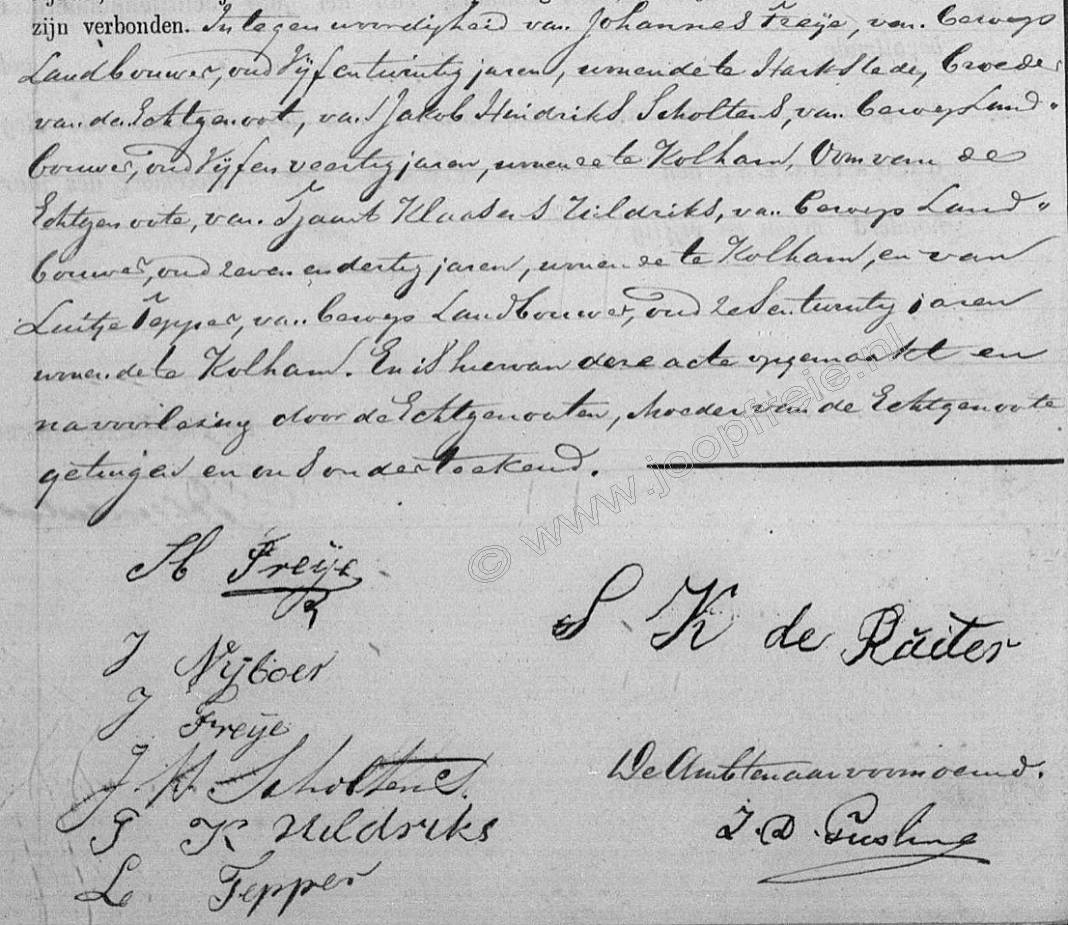 zijn verbonden. In tegenwoordigheid van Johannes Freije, van beroep
Landbouwer, oud Vijf en twintig jaren, wonende te Harkstede, broeder
van de Echtgenoot, van Jakob Hindriks Scholtens, van beroep Land-
bouwer, oud Vijf en veertig jaren, wonende te Kolham, Oom van de
Echtgenoote, van Tjaart Klaassens Uildriks, van beroep Land-
bouwer, oud zeven en dertig jaren, wonende te Kolham, en van
Luitje Tepper, van beroep Landbouwer, oud zes en twintig jaren
wonende te Kolham. En is hiervan deze acte opgemaakt en
na voorlezing door de Echtgenooten, Moeder van de Echtgenoote
getuigen en ons onderteekend.
© www.joopfreie.nl
H Freije
S. K de Ruiter
J Nijboer
J Freije
J. H. Scholtens
De Ambtenaar voornoemd.
T K Uildriks
L. Tepper